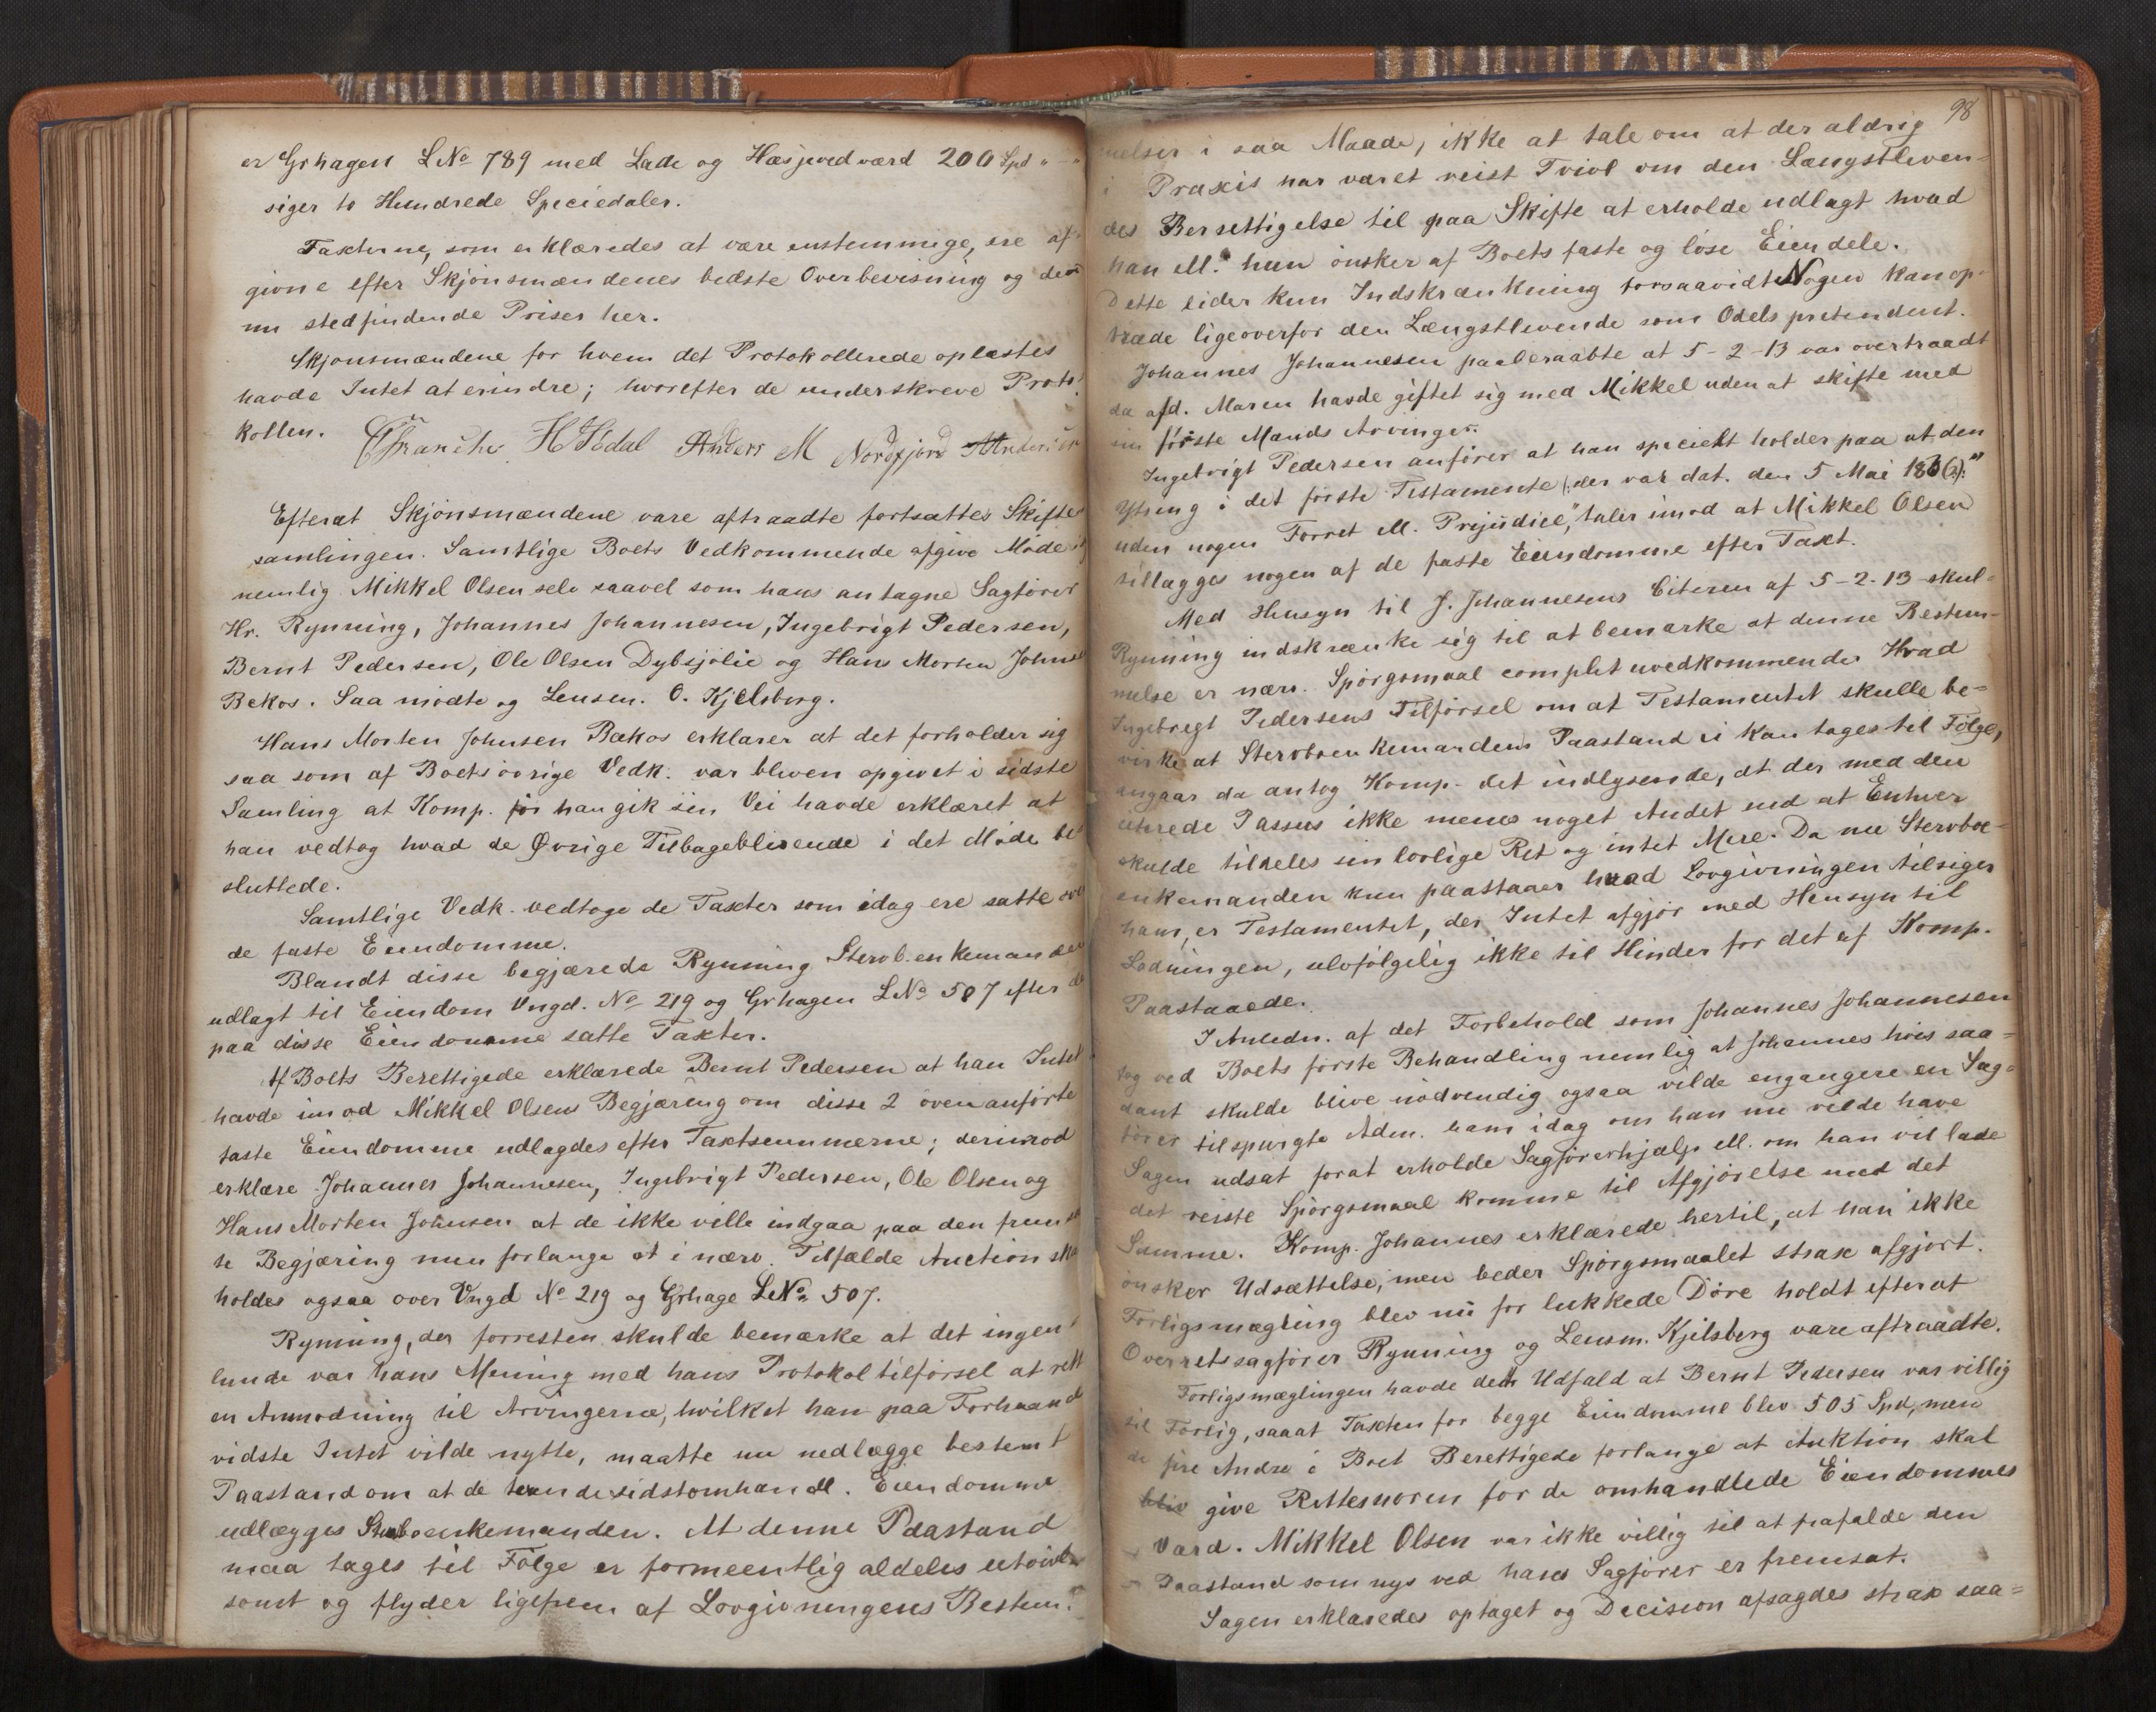 er Grhagen LNo 789 med Lade og Hæsjeved værd 200 Spd " - "
siger to Hundrede Speciedaler.
Taxterne, som erklæredes at være enstemmige, ere af-
givne efter Skjönsmændenes bedste Overbevisning og den
nu stedfindende Priser her.
Skjønsmændene for hvem det Protokollerede oplæstes
havde Intet at erindre; hvorefter de underskreve Proto-
kollen. Anders M Nordfjord
Efterat Skjönsmændene vare aftraadte fortsattes Skifte
samlingen. Samtlige Boets Vedkommende afgive Møde
nemlig Mikkel Olsen selv saavel som hans antagne Sagfører
Hr. Rynning, Johannes Johannesen, Ingebrigt Pedersen,
Bernt Pedersen, Ole Olsen Dybsjølie og Hans Morten Johns
Bekos. Saa mødte og Lensm. O. Kjelsberg.
Hans Morten Johnsen Bækos erklærer at det forholder sig
saa som af Boets øvrige Vedk. var bleven opgivet i sidste
Samling at Komp. før han gik sin Vei havde erklæret at
han vedtog hvad de Øvrige Tilbageblivende i det Møde be
sluttede.
Samtlige Vedk. vedtoge de Taxter som idag ere satte
de faste Eiendomme.
Blandt disse begjærede Rynning Stervb.enkemanden
udlagt til Eiendom Vngd. No 219 og Grhagen LNo 507 efter de
paa disse Eiendomme satte Taxter.
Af Boets Berettigede erklærede Bernt Pedersen at han Intet
havde imod Mikkel Olsens Begjæring om disse 2 ovenanførte
faste Eiendomme udlagdes efter Taxtsummerne; derimod
erklære Johannes Johannesen, Ingebrigt Pedersen, Ole Olsen og
Hans Morten Johnsen at de ikke ville indgaa paa den frem
te Begjæring men forlange at i nærv. Tilfælde Auction ska
holdes ogsaa over Vngd No 219 og Grhage LNo 507.
Rynning, der forresten skulde bemærke at det ingen
lunde var hans Mening med hans Protokoltilførsel at rett
en Anmodning til Arvingerne, hvilket han paa Forhaand
vidste Intet vilde nytte, maatte nu nedlægge bestemt
Paastand om at de tvende sidstomhandl. Eiendomme
udlægges Stervboenkemanden. At denne Paastand
maa tages til Følge er formeentlig aldeles utvivl
somt og flyder ligefrem af Lovgivningens Bestem-
98
melser i saa Maade, ikke at tale om at der aldrig
i Praxis har været reist Tvivl om den Længstleven-
des Berettigelse til paa Skifte at erholde udlagt hvad
han ell. hun ønsker af Boets faste og løse Eiendele.
Dette lider kun Indskrænkning forsaavidt Nogen kan op-
træde ligeoverfor den Længstlevende som Odelspretendent.
Johannes Johannesen paaberaabte at 5-2-13 var overtraadt
da afd. Maren havde giftet sig med Mikkel uden at skifte med
sin første Mands Arvinger.
Ingebrigt Pedersen anfører at han specielt holder paa at den
Ytring i det første Testamente (: der var dat. den 5 Mai 186(2):) "
uden nogen Forret ell. Prejudice," taler imod at Mikkel Olsen
tillægges nogen af de faste Eiendomme efter Taxt.
Med Hensyn til J. Johannesens Citeren af 5-2-13 skul-
Rynning indskrænke sig til at bemærke at denne Bestem-
melse er nærv. Spørgsmaal complet uvedkommende. Hvad
Ingebrigt Pedersens Tilførsel om at Testamentet skulle be-
virke at Stervboenkemandens Paastand ei kan tages til Følge,
angaar da antog Komp. det indlysende, at der med den
citerede Passus ikke menes noget Andet end at Enhver
skulde tildeles sin lovlige Ret og intet Mere. Da nu Stervboe-
enkemanden kun paastaaer hvad Lovgivningen tilsiger
ham, er Testamentet, der Intet afgjør med Hensyn til
Lodningen, selvfølgelig ikke til Hinder for det af Komp.
Paastaaede.
I Anledn. af det Forbehold som Johannes Johannesen
tog ved Boets første Behandling nemlig at Johannes hvis saa-
dant skulde blive nödvendig ogsaa vilde engangere en Sag-
fører tilspurgte Adm. ham idag om han nu vilde have
Sagen udsat forat erholde Sagførerhjælp ell. om han vil lade
det reiste Spørgsmaal komme til Afgjørelse med det
Samme. Komp. Johannes erklærede hertil, at han ikke
ønsker Udsættelse, men beder Spørgsmaalet strax afgjort.
Forligsmægling blev nu for lukkede Døre holdt efterat
Overretssagfører Rynning og Lensm. Kjelsberg vare aftraadte.
Forligsmæglingen havde det Udfald at Bernt Pedersen var villig
til Forlig, saaat Taxten for begge Eiendomme blev 505 Spd, men
de fire Andre i Boet Berettigede forlange at Auktion skal
bliv give Rettesnoren for de omhandlede Eiendommes
Værd. Mikkel Olsen var ikke villig til at frafalde den
Paastand som nys ved hans Sagfører er fremsat.
Sagen erklæredes optaget og Decision afsagdes strax saa-